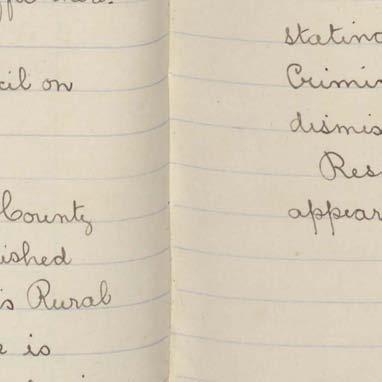 cil on
County
ished
is Rural
e is
stating
Crimin
dismis
Res
appear